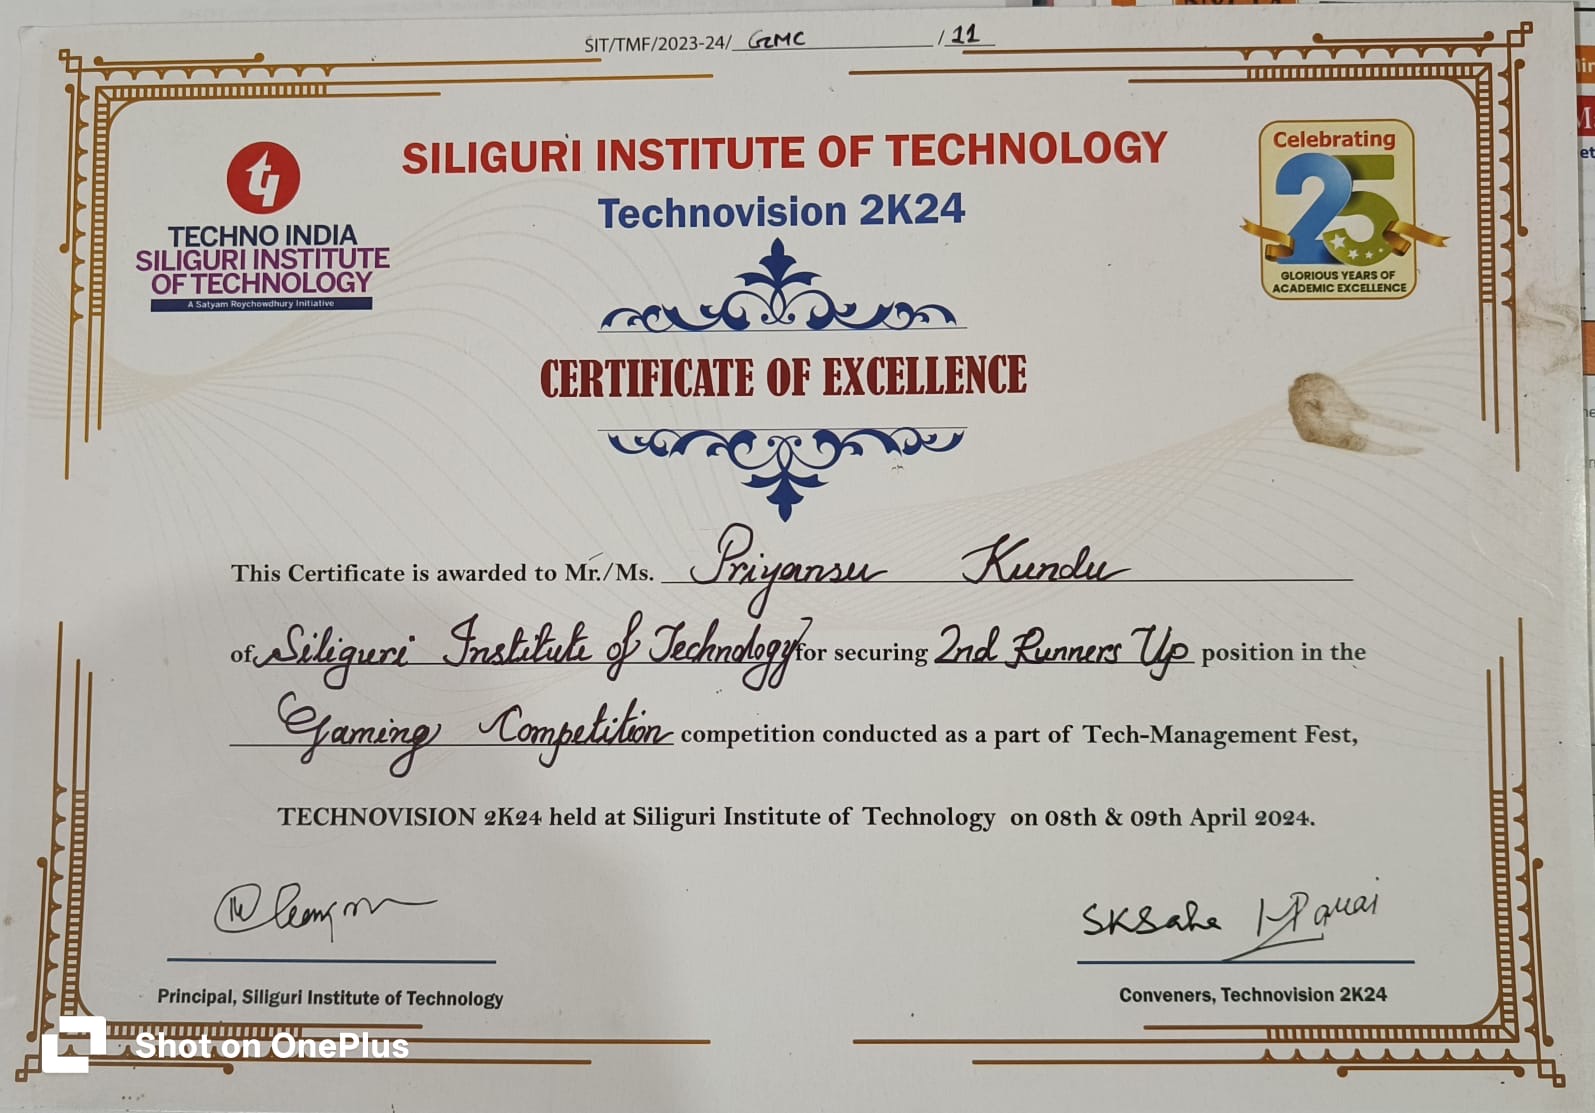 SIT/TMF/2023-24/ GMC / 11
SILIGURI INSTITUTE OF TECHNOLOGY
Technovision 2K24
TECHNO INDIA
SILIGURI INSTITUTE
OF TECHNOLOGY
A Satyam Roychowdhury Initiative
Celebrating
25
GLORIOUS YEARS OF
ACADEMIC EXCELLENCE
CERTIFICATE OF EXCELLENCE
This Certificate is awarded to Mr./Ms. Priyansu Kundu
of Siliguri Institute of Technology for securing 2nd Runners Up position in the
Gaming Competition competition conducted as a part of Tech-Management Fest,
TECHNOVISION 2K24 held at Siliguri Institute of Technology on 08th & 09th April 2024.
SKSaha
Principal, Siliguri Institute of Technology
Conveners, Technovision 2K24
Shot on OnePlus